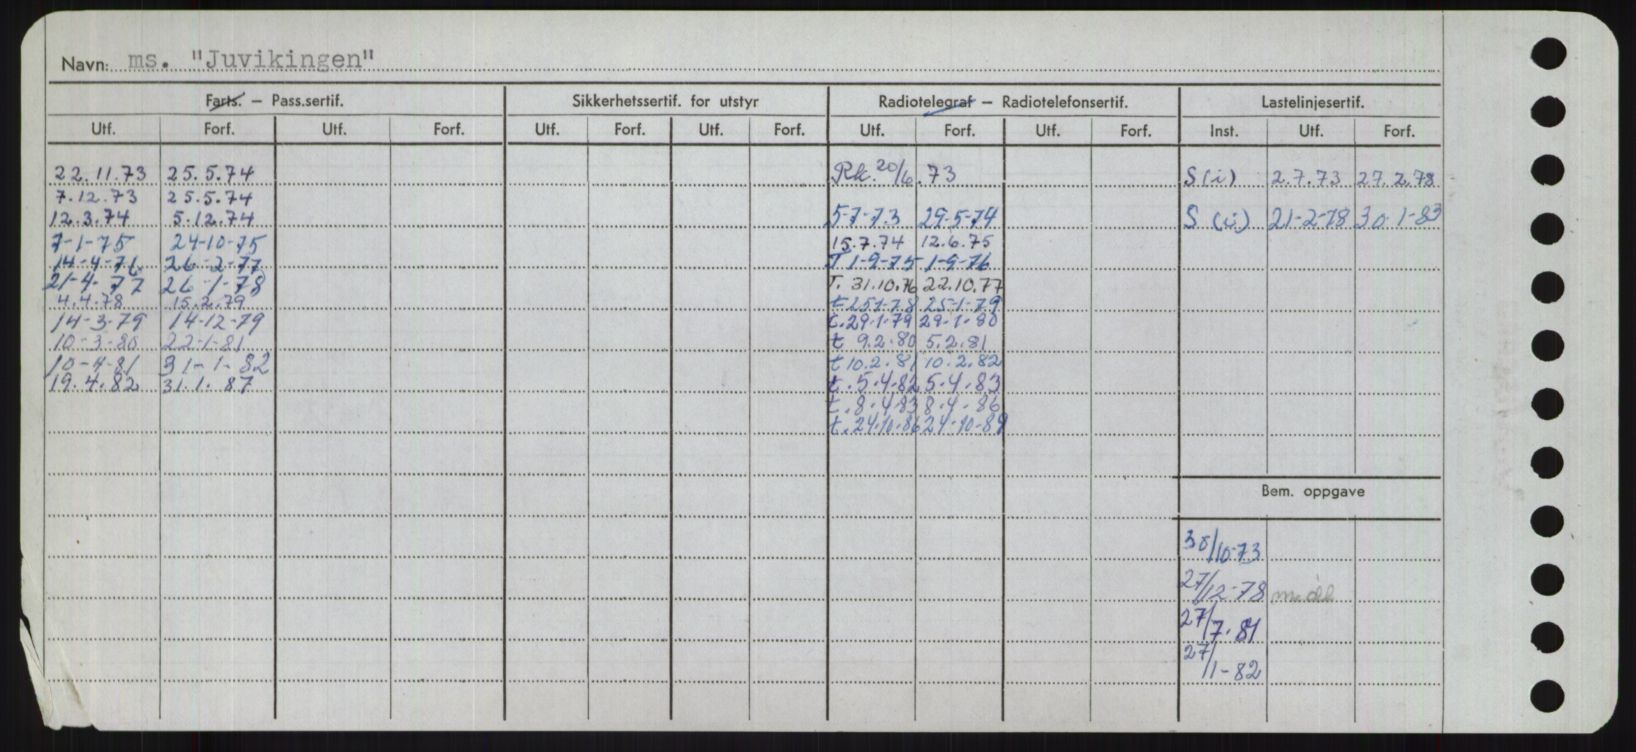 Navn: ms. "Juvikingen"
Farts. – Pass.sertif. Sikkerhetssertif. for utstyr Radiotelegraf – Radiotelefonsertif. Lastelinjesertif.
Utf. Forf. Utf. Forf. Utf. Forf. Utf. Forf. Utf. Forf. Utf. Forf. Inst. Utf. Forf.
22.11.73 25.5.74 Rk. 20/6.73 S(i) 2.7.73 27.2.78
7.12.73 25.5.74
12.3.74 5.12.74 5-7-73 29-5-74 S (i) 21-2-78 30.1-83
7-1-75 24-10-75 15.7.74 12.6.75
14-4-76 26-2-77 T 1-9-75 1-9-76
21-4-77 26-1-78 T. 31.10.76 22.10.77
4.4.78 15.2.79 t 25-1-78 25-1-79
14-3-79 14-12-79 t.29.1.79 29-1-80
10-3-80 22-1-81 t 9.2.80 5.2.81
10-4-81 31-1-82 t 10.2.81 10.2.82
19.4.82 31.1.87 t.5.4.82 5.4.83
t.8.4.83 8.4.86
t.24.10.86 24-10-89
Bem. oppgave
30/10-73
27/12-78
27/7.81
27/1-82